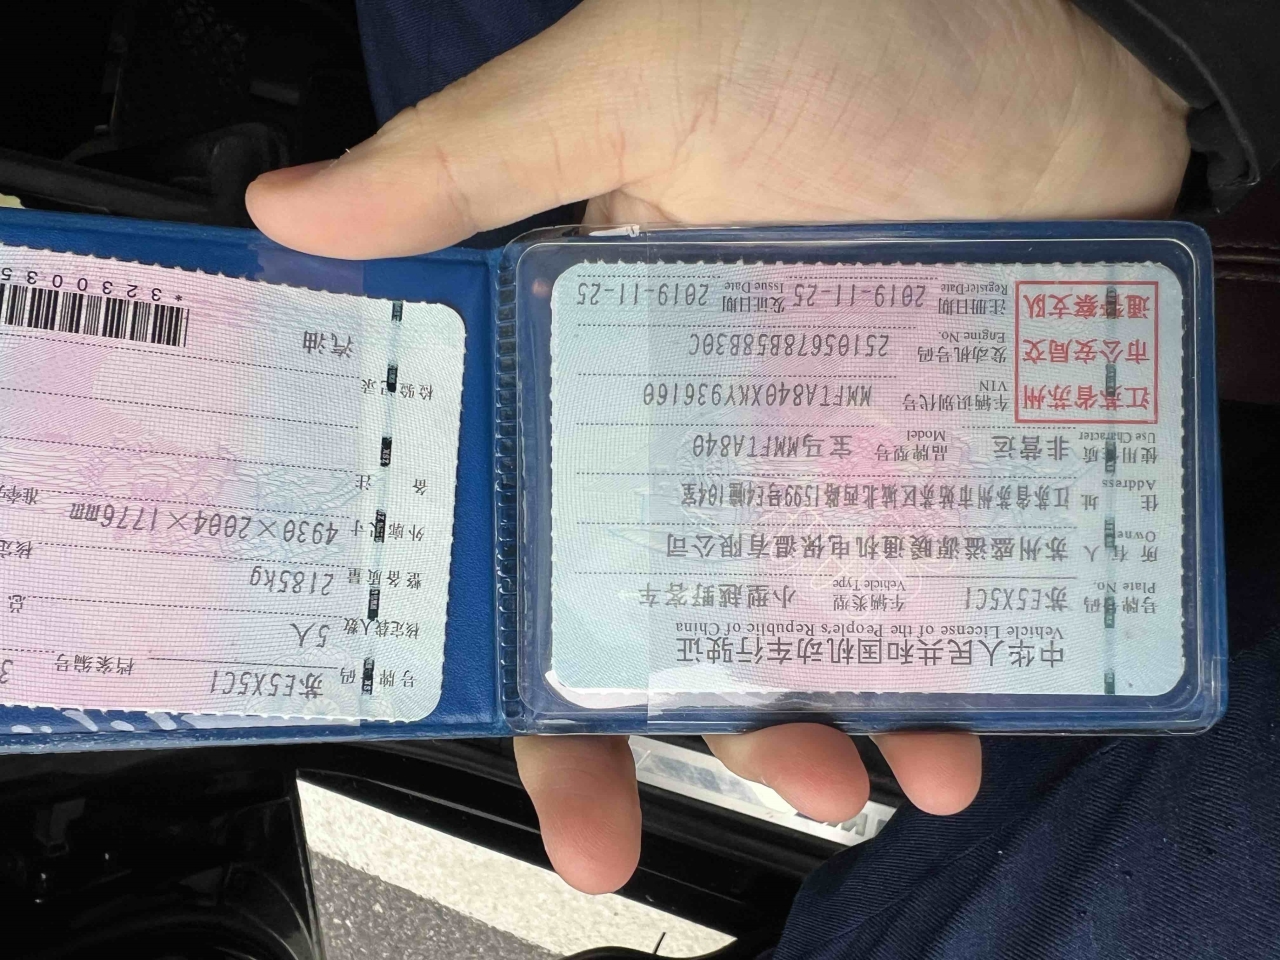 中华人民共和国机动车行驶证
Vehicle License of the People's Republic of China
号牌号码 苏E5X5C1 车辆类型 小型越野客车
Plate No. Vehicle Type
所有人 苏州盛溢源暖通机电保温有限公司
Owner
住址 江苏省苏州市姑苏区城北西路1599号E4幢104室
Address
使用性质 非营运 品牌型号 宝马MMFTA840
Use Character Model
江苏省苏州
市公安局交
通警察支队
车辆识别代号 MMFTA840XKY936160
VIN
发动机号码 25105678B58B30C
Engine No.
注册日期 2019-11-25 发证日期 2019-11-25
Register Date Issue Date
号牌号码 苏E5X5C1 档案编号 3
核定载人数 5人 总
整备质量 2185kg 核定
外廓尺寸 4930×2004×1776mm 准牵
备注
检验记录
汽油
*3230035